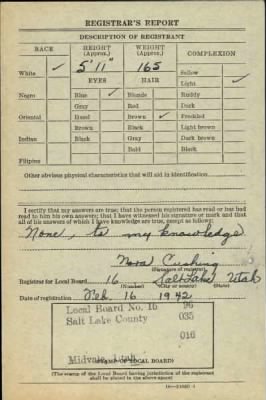 REGISTRAR'S REPORT
DESCRIPTION OF REGISTRANT
RACE HEIGHT (Approx.) WEIGHT (Approx.) COMPLEXION
White ✓ 5' 11" 165 Sallow
Light ✓
EYES HAIR
Negro Blue ✓ Blonde Ruddy
Gray Red Dark
Oriental Hazel Brown ✓ Freckled
Brown Black Light brown
Indian Black Gray Dark brown
Bald Black
Filipino
Other obvious physical characteristics that will aid in identification
I certify that my answers are true; that the person registered has read or has had
read to him his own answers; that I have witnessed his signature or mark and that
all of his answers of which I have knowledge are true, except as follows:
None, to my knowledge
Nora Cushing
(Signature of registrar)
Registrar for Local Board 16 Salt Lake Utah
(Number) (City or county) (State)
Date of registration Feb. 16 1942
Local Board No. 16 96
Salt Lake County 035
016
Midvale, Utah
(STAMP OF LOCAL BOARD)
(The stamp of the Local Board having jurisdiction of the registrant
shall be placed in the above space.)